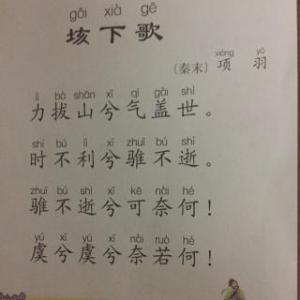 gāi xià gē
垓下歌
xiàng yǔ
〔秦末〕项 羽
lì bá shān xī qì gài shì
力拔山兮气盖世。
shí bú lì xī zhuī bú shì
时不利兮骓不逝。
zhuī bú shì xī kě nài hé
骓不逝兮可奈何！
yú xī yú xī nài ruò hé
虞兮虞兮奈若何！